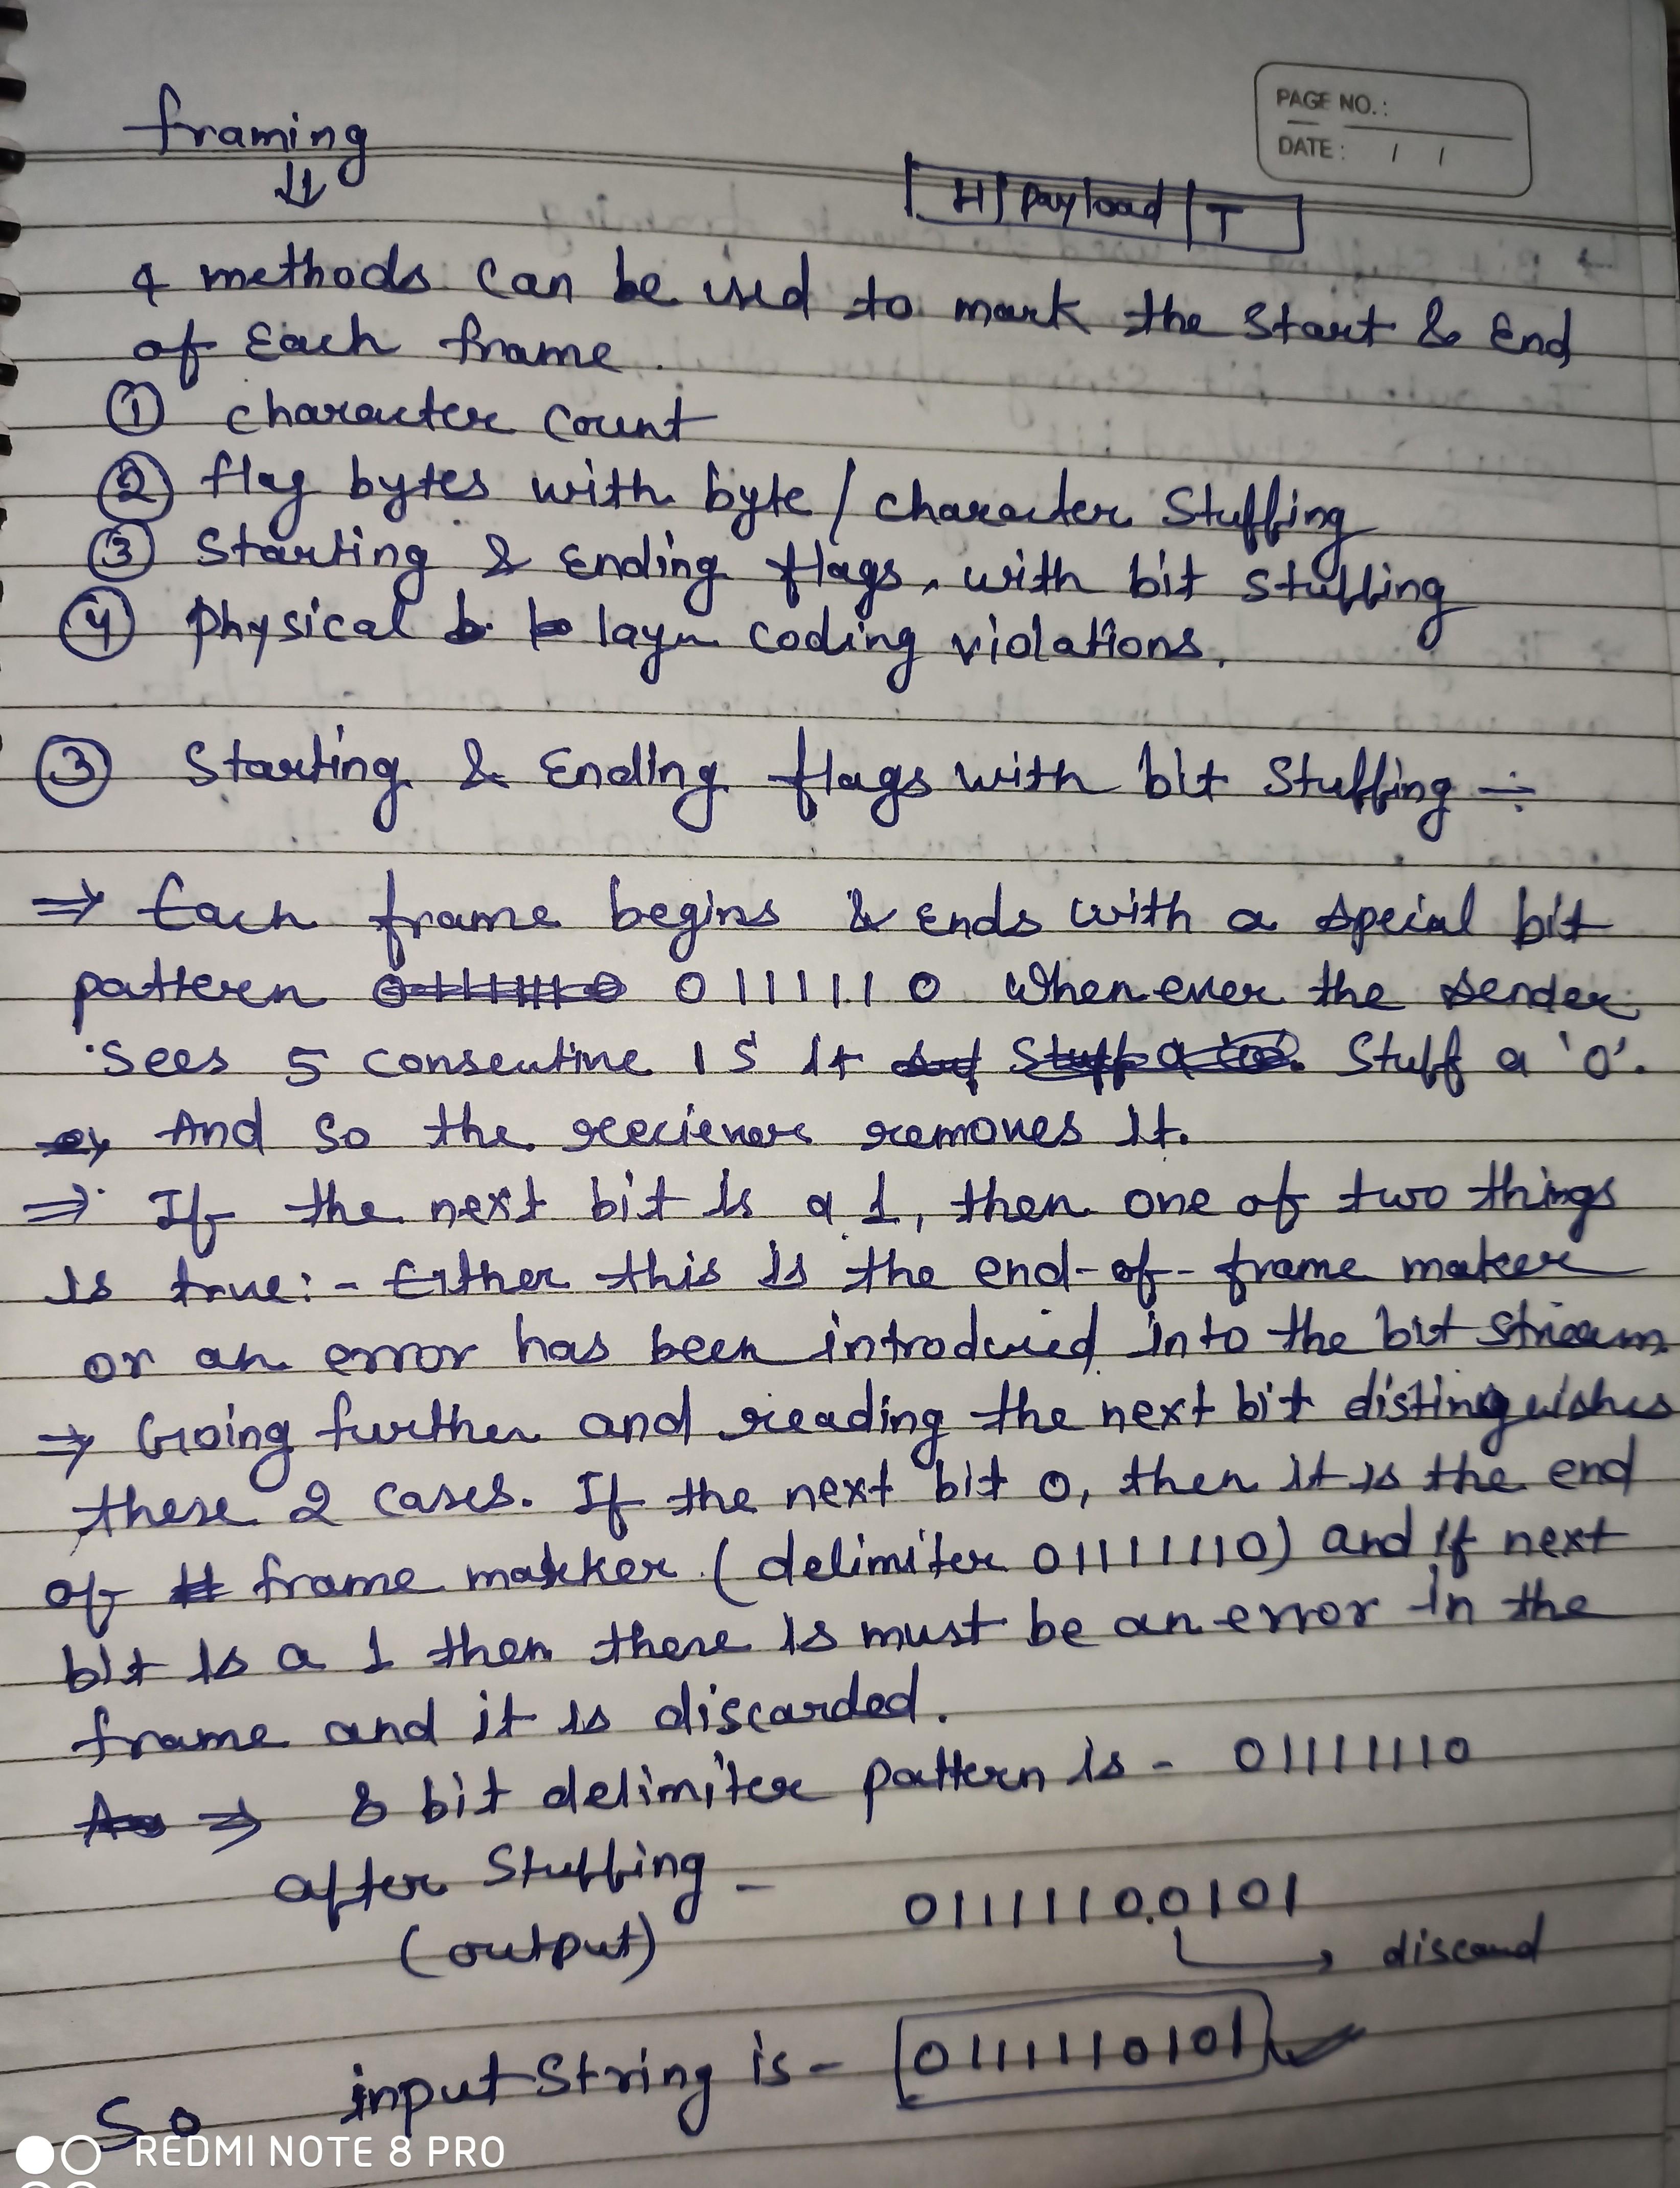 PAGE NO.:
DATE: / /
framing
H | Payload | T
4 methods can be used to mark the start & End
of Each frame.
① character count
② flag bytes with byte / character stuffing
③ Starting & Ending flags, with bit stuffing
④ Physical layer coding violations.
③ Starting & Ending flags with bit stuffing ÷
⇒ Each frame begins & Ends with a special bit
pattern 01111110 Whenever the sender
Sees 5 consecutive 1 S it Stuff a '0'.
And so the reciever removes it.
⇒ If the next bit is a 1, then one of two things
is true:- Either this is the end-of-frame maker
or an error has been introduced into the bit stream.
⇒ Going further and reading the next bit distinguishes
these 2 cases. If the next bit 0, then it is the end
of frame makker (delimiter 01111110) and if next
bit is a 1 then there is must be an error in the
frame and it is discarded.
⇒ 8 bit delimiter pattern is - 01111110
after Stuffing -
(output)
01111100101
discard
So input String is - 0111110101
REDMI NOTE 8 PRO